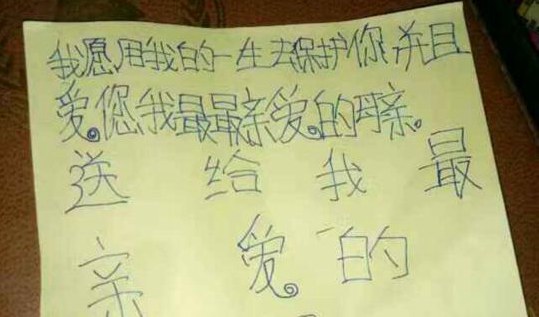 我愿用我的一生去保护你并且
爱您我最最亲爱的母亲。
送给我最
亲爱的